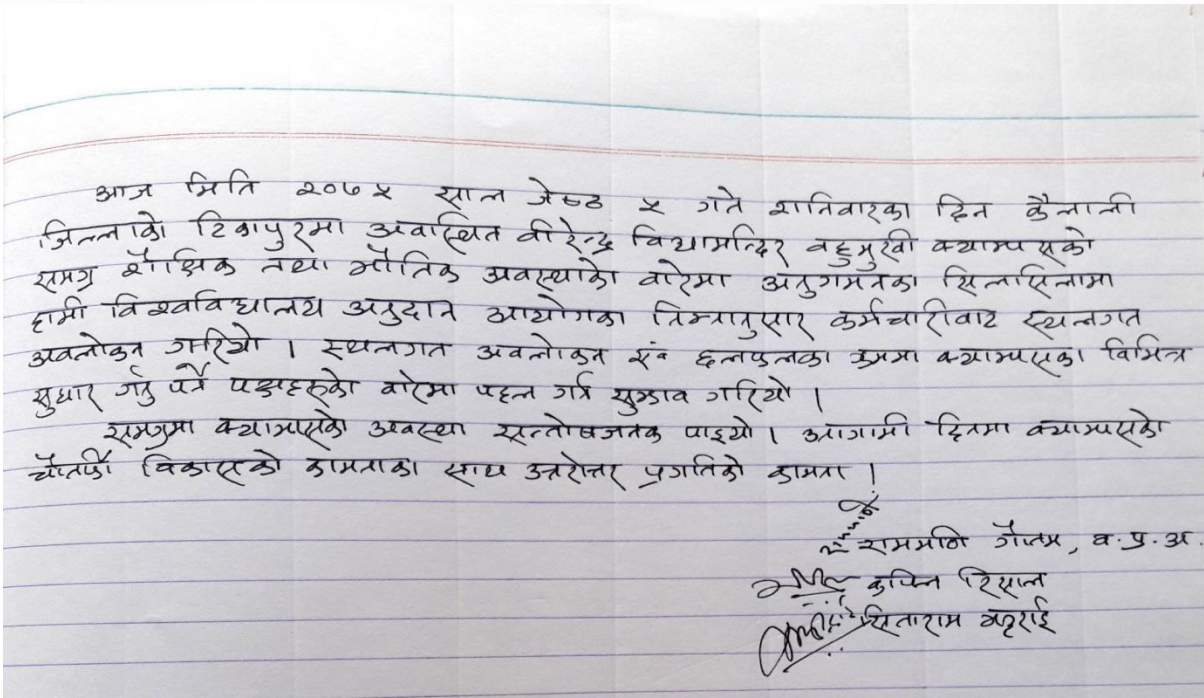 आज मिति २०७५ साल जेष्ठ ५ गते शनिवारका दिन कैलाली
जिल्लाको टिकापुरमा अवस्थित वीरेन्द्र विद्यामन्दिर बहुमुखी क्याम्पसको
समग्र शैक्षिक तथा भौतिक अवस्थाको वारेमा अनुगमनका सिलसिलामा
हामी विश्वविद्यालय अनुदान आयोगका निम्नानुसार कर्मचारीवाट स्थलगत
अवलोकन गरियो । स्थलगत अवलोकन एवं छलफलका क्रममा क्याम्पसका विभिन्न
सुधार गर्नु पर्ने पक्षहरुको वारेमा पहल गर्न सुझाव गरियो ।
समग्रमा क्याम्पसको अवस्था सन्तोषजनक पाइयो । आगामी दिनमा क्याम्पसको
चौतर्फी विकासको कामनाका साथ उत्तरोत्तर प्रगतिको कामना !
राममणि गौतम, व.प्र.अ.
कपिल रिसाल
सिताराम भट्टराई